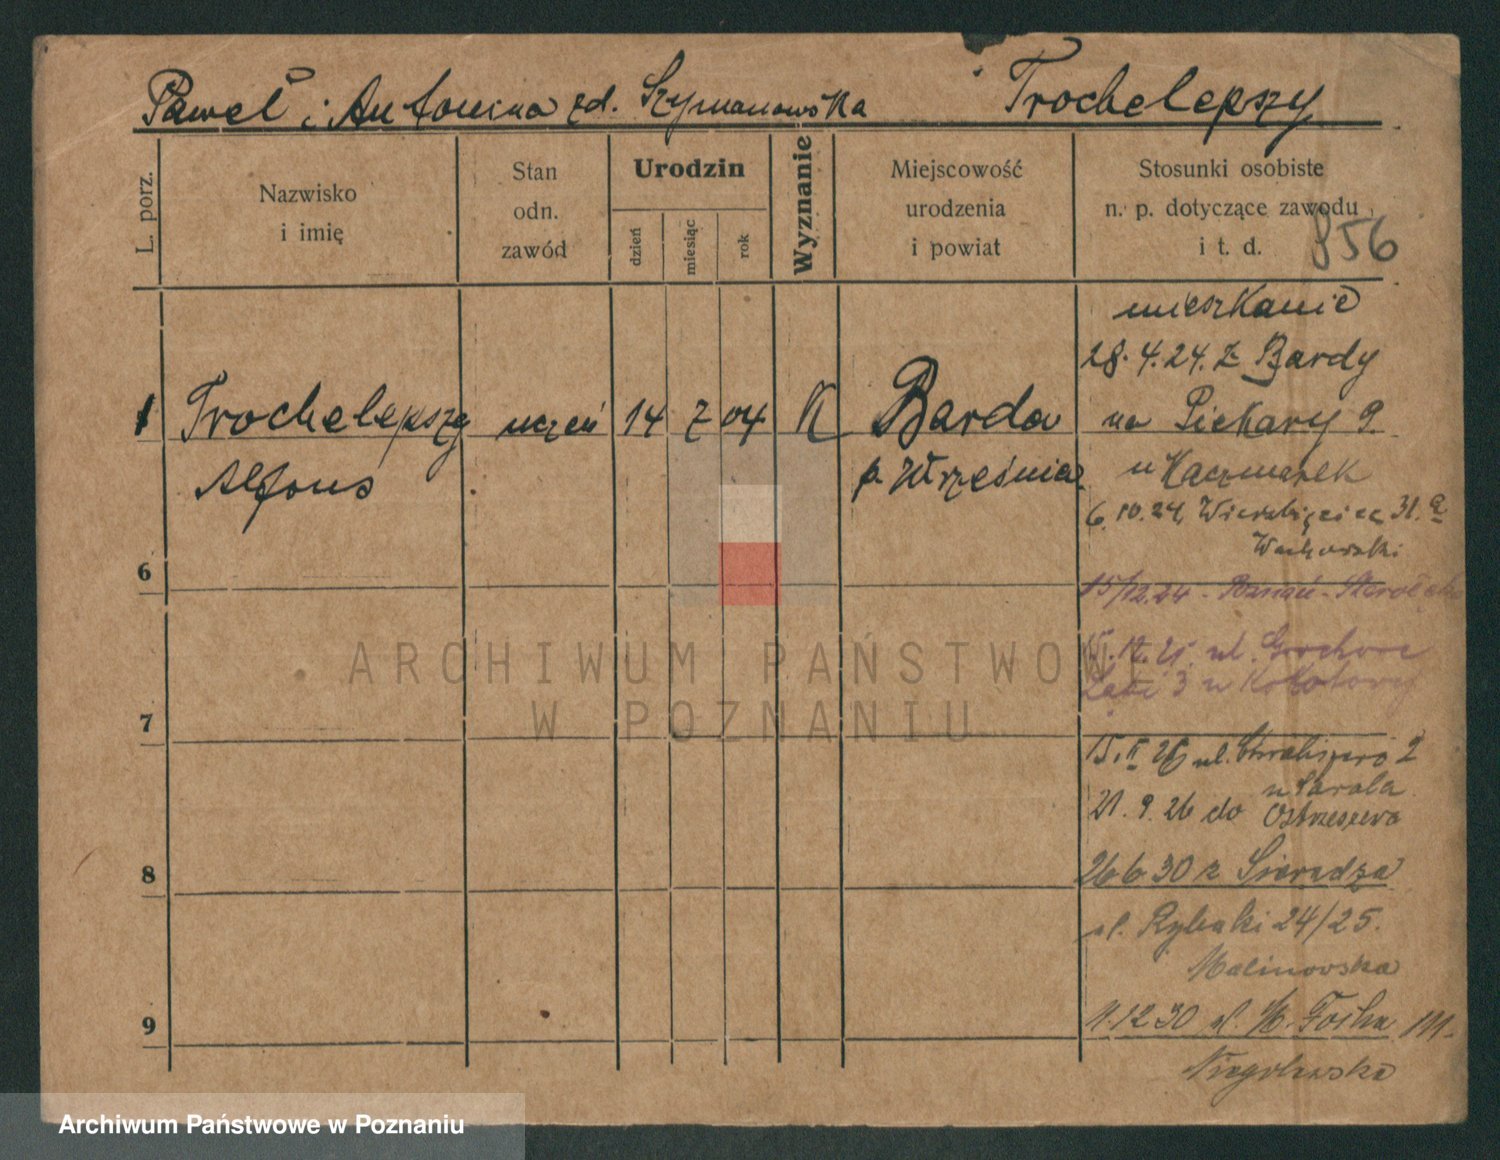 Paweł i Antonina zd. Szymanowska Trochelepszy
L. porz.
Nazwisko
i imię
Stan
odn.
zawód
Urodzin
dzień
miesiąc
rok
Wyznanie
Miejscowość
urodzenia
i powiat
Stosunki osobiste
n. p. dotyczące zawodu
i t. d.
856
mieszkanie
28.4.24. z Bardy
1 Trochelepszy uczeń 14 7 04 K Barda na Piekary 9.
Alfons p. Września u Kaczmarek
6.10.24. Wierzbięcice 31.a
6
15/12.24 - Poznań - Starołęka
ARCHIWUM PAŃSTWOWE
W POZNANIU
15.12.25. ul. Grochowe
Łąki 3 u
7
15.II 26 ul. 2
21.9.26 do Ostrzeszowa
8
26 6 30 z Sieradza
ul. Rybaki 24/25.
Malinowska
9
1.12 30 ul. M. Focha 111.
Niegolewska
Archiwum Państwowe w Poznaniu